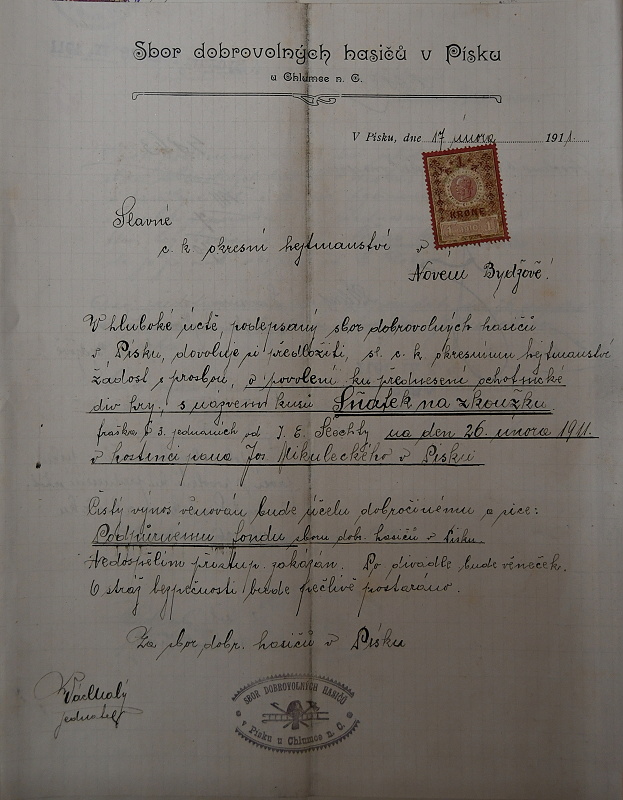 Sbor dobrovolných hasičů v Písku
u Chlumce n. C.
V Písku, dne 17 února 1911.
1
KRONE
Slavné
c. k. okresní hejtmanství v
Novém Bydžově!
V hluboké úctě, podepsaný sbor dobrovolných hasičů
v Písku, dovoluje si předložiti, sl. c. k. okresnímu hejtmanství
žádost s prosbou, o povolení ku přednesení ochotnické
div. hry, s názvem kusu Sňatek na zkoušku
fraška o 3. jednáních od J. E. na den 26. února 1911.
v hostinci pana Jos Mikuleckého v Písku
Čistý výnos věnován bude účelu dobročinému a sice:
Podpůrnému fondu sboru dobr. hasičů v Písku.
Nedospělím přístup zakázán. Po divadle bude věneček.
O stráž bezpečnosti bude pečlivě postaráno.
Za sbor dobr. hasičů v Písku
jednatel
SBOR DOBROVOLNÝCH HASIČŮ
v Písku u Chlumce n. C.